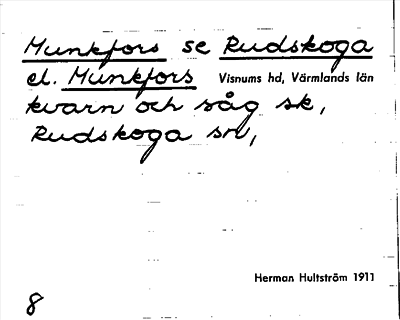 Munkfors se Rudskoga
el. Munkfors Visnums hd, Värmlands län
kvarn och såg sk,
Rudskoga sn,
Herman Hultström 1911
8